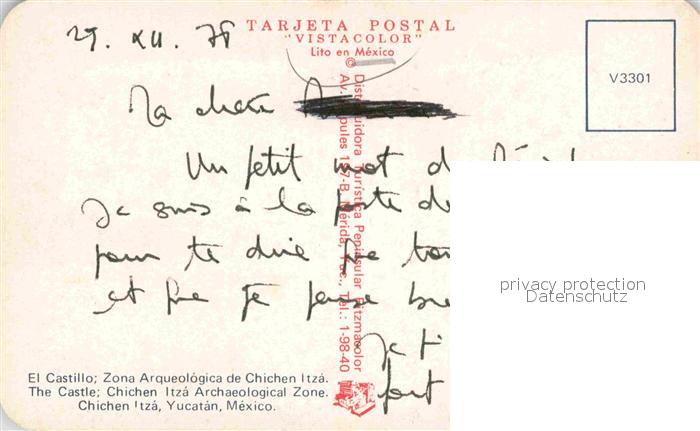 29. XII. 78
TARJETA POSTAL
"VISTACOLOR"
Lito en México
©
V3301
Ma chère
Un petit mot de
Je suis à la poste de
pour te dire que
et que je pense
Je t'
fort
Distribuidora Turística Peninsular Fitzmacolor
Av. Itzaes 197-B, Mérida, Yuc., Tel.: 1-98-40
privacy protection
Datenschutz
El Castillo; Zona Arqueológica de Chichen Itzá.
The Castle; Chichen Itzá Archaeological Zone.
Chichen Itzá, Yucatán, México.